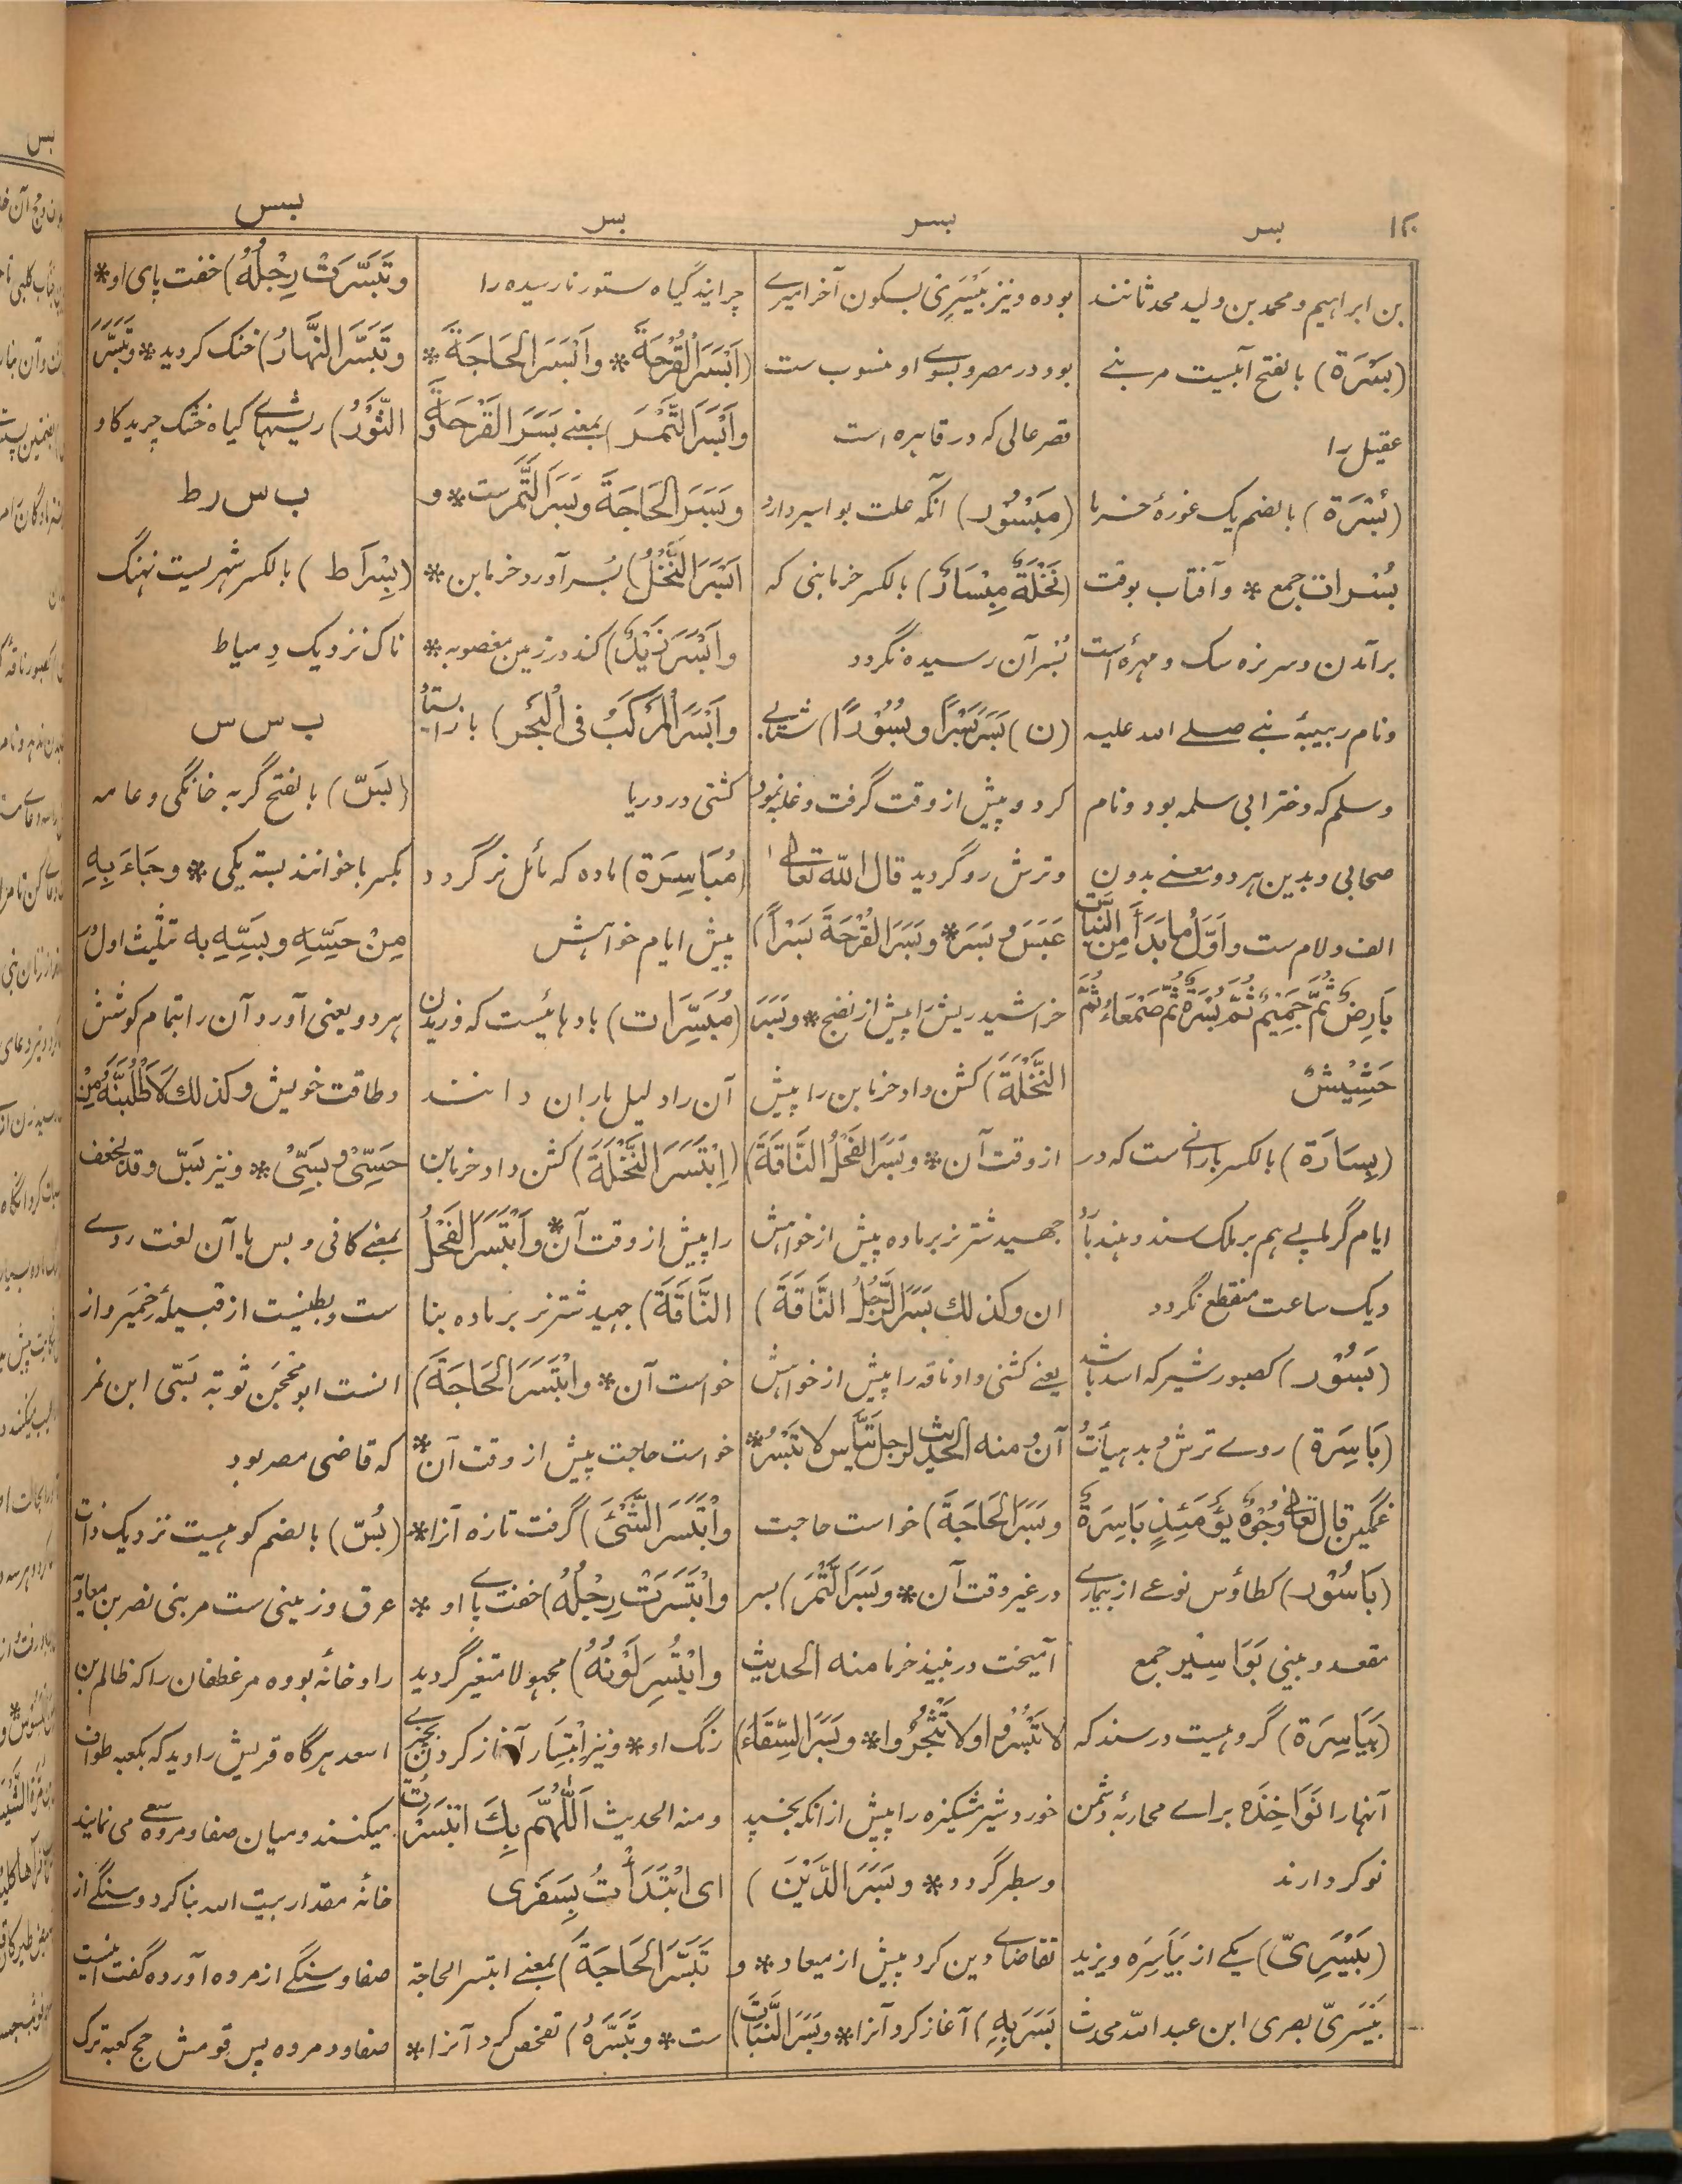 ۱۲۰
بسر
بسر
بسر
بس
بن ابراہیم و محمد بن ولید محدثانند
(بَسْرَة) بالفتح آبیست مر بنے
عقیل را
(بُسْرَة) بالضم یک غورهٔ خرما
بُسْرات جمع * و آفتاب بوقت
برآمدن و سر نره سک و مهره است
و نام ربیبهٔ نبے صلے الله علیه
وسلم که دختر ابی سلمه بود و نام
صحابی و بدین هر دو معنے بدون
الف و لام ست و اَوَّلُ مَا بَدَأَ مِنَ النَّبَاتِ
بَارِضٌ ثُمَّ جَمِیْمٌ ثُمَّ بُسْرَةٌ ثُمَّ صَمْعَاءُ ثُمَّ
حَشِیْشٌ
(بِسَارَة) بالکسر بارانے ست که در
ایام گرما پے هم بر ملک سند و هند بارد
و یک ساعت منقطع نگردد
(بَسُوْر) کصبور شیر که اسد باشد
(بَاسِرَة) روے ترش و بد هیأت
غمگین قال تعالٰی وُجُوْهٌ یَّوْمَئِذٍ بَاسِرَةٌ
(بَاسُوْر) کطاؤس نوعے از بیمارے
مقعد و بینی بَوَاسِیْر جمع
(بَیَاسِرَة) گروهیست در سند که
آنها را نَوَاخِذَه براے محاربهٔ دشمن
نوکر دارند
(بَیْسَرِیّ) یکے از بَیَاسِرَه و یزید
بَیْسَرِیّ بصری ابن عبد الله محدث
بوده و نیز بَیْسَرِیْ بسکون آخر امیرے
بود در مصر و بسوے او منسوب ست
قصر عالی که در قاهره است
(مَبْسُوْر) آنکه علت بواسیر دارد
(نَخْلَةٌ مِبْسَارٌ) بالکسر خرما بنی که
بُسْر آن رسیده نگردد
(ن) بَسَرَ بَسْرًا و بُسُوْرًا) شتابے
کرد و پیش از وقت گرفت و غلبه نمود
و ترش رو گردید قال الله تعالٰی
عَبَسَ وَ بَسَرَ * و بَسَرَ القُرْحَةَ بَسْرًا)
خراشید ریش را پیش از نضج * و بَسَرَ
النَّخْلَةَ) کشن داد خرما بن را پیش
از وقت آن * و بَسَرَ الفَحْلُ النَّاقَةَ)
جهید شتر نر بر ماده پیش از خواهش
ان و کذلك بَسَرَ الرَّجُلُ النَّاقَةَ)
یعنے کشنی داد ناقه را پیش از خواهش
آن و منه الحدیث لرجل تَیَّاس لا تَبْسُرْ *
و بَسَرَ الحَاجَةَ) خواست حاجت
در غیر وقت آن * و بَسَرَ التَّمْرَ) بسر
آمیخت در نبیذ خرما منه الحدیث
لا تَبْسُرُوا و لا تَثْجُرُوا * و بَسَرَ السِّقَاءَ)
خورد شیر مشکیزه را پیش از انکه بخسپد
و سطبر گردد * و بَسَرَ الدَّیْنَ)
تقاضاے دین کرد پیش از میعاد * و
بَسَرَ بِهِ) آغاز کرد آنرا * و بَسَرَ النَّبَاتَ)
چرانید گیاه ستور نارسیده را
(اَبْسَرَ القُرْحَةَ * و اَبْسَرَ الحَاجَةَ *
و اَبْسَرَ التَّمْرَ) بمعنے بَسَرَ القَرْحَةَ وَ
وَ بَسَرَ الحَاجَةَ و بَسَرَ التَّمْرَ ست * و
اَبْسَرَ النَّخْلُ) بُسر آورد خرما بن *
و اَبْسَرَ زَیْدٌ) کند در زمین مغصوبه *
و اَبْسَرَ المَرْکَبُ فِی الْبَحْرِ) باز ایستاد
کشتی در دریا
(مُبَاسِرَة) ماده که مائل نر گردد
پیش ایام خواهش
(مُبَسِّرَات) بادهائیست که وزیدن
آن را دلیل باران دانند
(اِبْتَسَرَ النَّخْلَةَ) کشن داد خرما بن
را پیش از وقت آن * و اَبْتَسَرَ الفَحْلُ
النَّاقَةَ) جهید شتر نر بر ماده بنا
خواست آن * و ابْتَسَرَ الحَاجَةَ)
خواست حاجت پیش از وقت آن *
و ابْتَسَرَ الشَّیْئَ) گرفت تازه آنرا *
و ابْتَسَرَتْ رِجْلُهُ) خفت پاے او *
و ابْتُسِرَ لَوْنُهُ) مجهولا متغیر گردید
رنگ او * و نیز اِبْتِسَار آغاز کردن بچیزے
و منه الحدیث اَللّٰهُمَّ بِكَ ابْتَسَرْتُ
ای ابْتَدَأْتُ بِسَفَرِی
تَبَسَّرَ الحَاجَةَ) بمعنے ابتسر الحاجة
ست * و تَبَسَّرَهُ) تفحص کرد آنرا *
و تَبَسَّرَتْ رِجْلُهُ) خفت پای او *
و تَبَسَّرَ النَّهَارُ) خنک گردید * و تَبَسَّرَ
الثَّوْرُ) ریشهاے گیاه خشک چرید گاو
ب س ر ط
(بِسْرَاط) بالکسر شهریست نهنگ
ناک نزدیک دِمیاط
ب س س
(بَسّ) بالفتح گربه خانگی و عامه
بکسر با خوانند بسته یکی * و جَاءَ بِهِ
مِنْ حَسِّهِ و بَسِّهِ به تثلیث اول
هر دو یعنی آورد آن را بتمام کوشش
و طاقت خویش و کذلك لَاَطْلُبَنَّهُ مِنْ
حَسِّیْ و بَسِّیْ * و نیز بَسّ و قد یخفف
بمعنے کافی و بس یا آن لغت ردے
ست و بطنیست از قبیلهٔ حِمْیَر و از
انست ابو محجن توبه بَسّی ابن نمر
که قاضی مصر بود
(بُسّ) بالضم کوهیست نزدیک ذات
عرق و زمینی ست مر بنی نصر بن معاویه
را و خانهٔ بوده مر غطفان را که ظالم بن
اسعد هرگاه قریش را دید که بکعبه طواف
میکنند و میان صفا و مروه سعے می نمایند
خانهٔ مقدار بیت الله بنا کرد و سنگے از
صفا و سنگے از مروه آورده گفت اینست
صفا و مروه پس قومش حج کعبه ترک